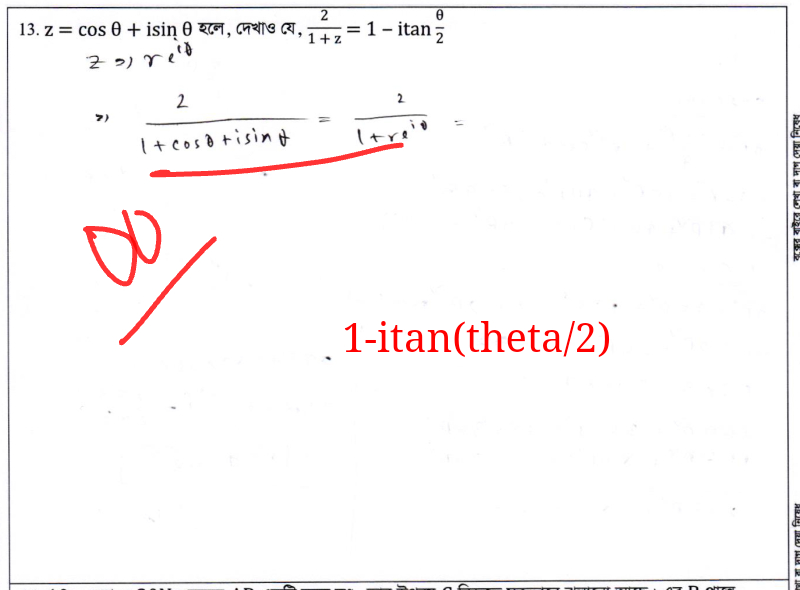 13. z = cos θ + isin θ হলে, দেখাও যে, 2/(1 + z) = 1 − itan θ/2
z => re^iθ
=> 2/(1 + cosθ + isinθ) = 2/(1 + re^iθ) =
00
1-itan(theta/2)
বক্সের বাইরে লেখা বা দাগ দেয়া নিষেধ